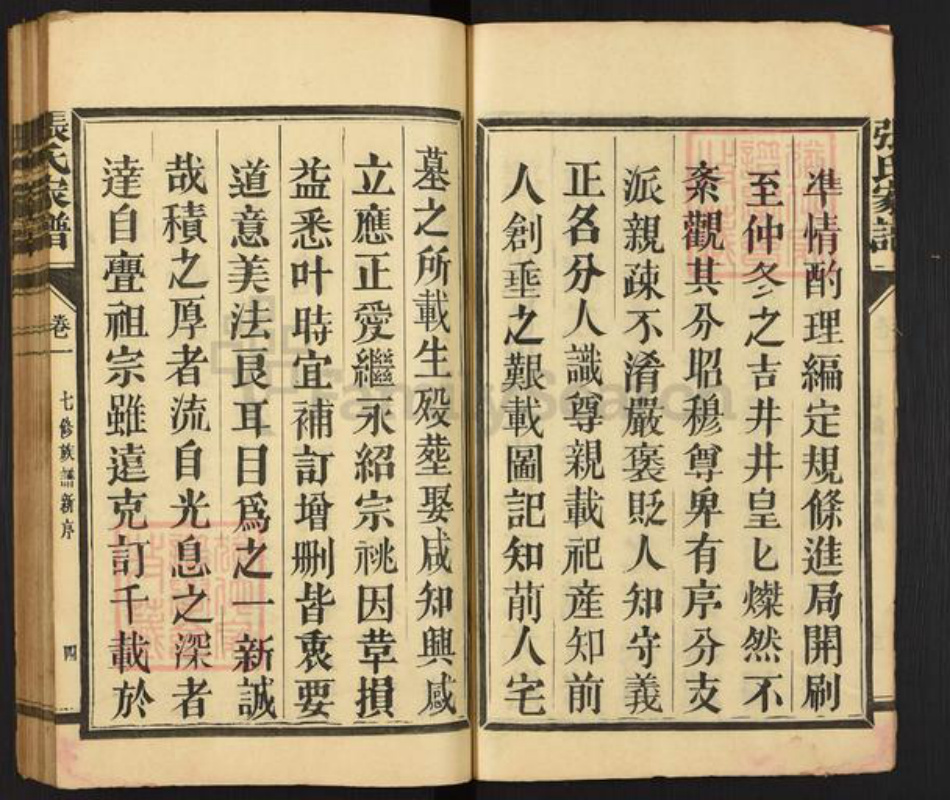 準情酌理編定規條進局開刷
至仲冬之吉井井皇匕燦然不
紊觀其分昭穆尊卑有序分支
派親疎不淆嚴褒貶人知守義
正各分人識尊親載祀産知前
人創垂之艱載圖記知前人宅
墓之所載生殁塟娶咸知興感
立應正愛繼永紹宗祧因革損
益悉叶時宜補訂增删皆衷要
道意美法良耳目爲之一新誠
哉積之厚者流自光息之深者
達自亹祖宗雖遠克訂千載於
張氏家譜
卷一
七修族譜新序
四
張氏家譜
FamilySearch